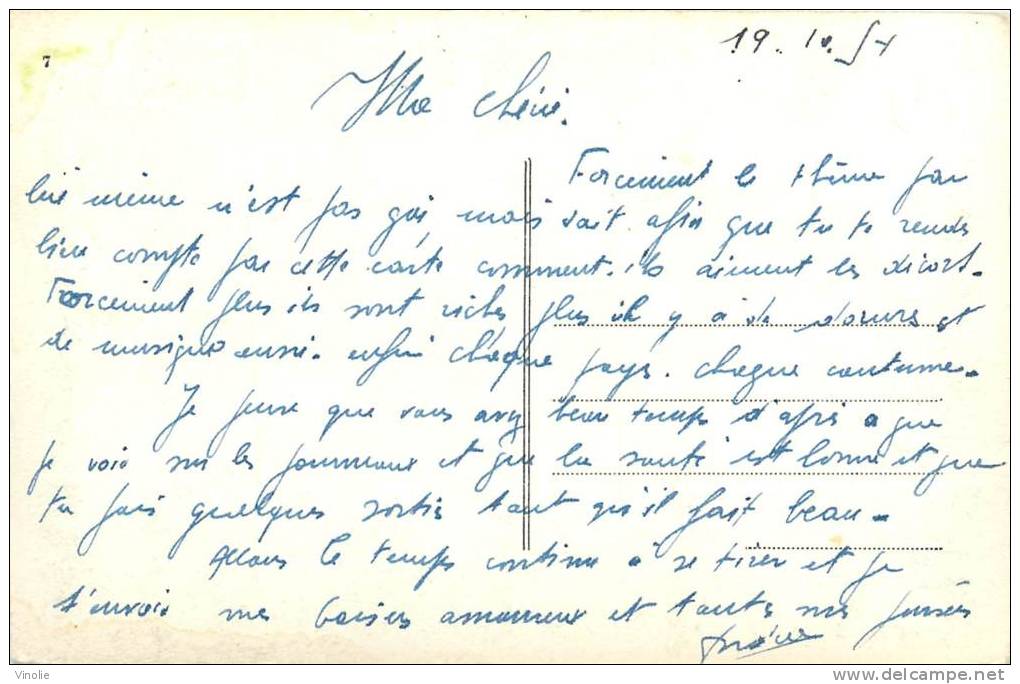 7
19. IV. 54
Ma chérie.
Forcement le thème par
lui même n'est pas gai, mais sait afin que tu te rendes
bien compte par cette carte comment ils aiment les décors.
Forcement plus ils sont riches plus il y a de dorures et
de musique aussi. enfin chaque pays. chaque coutume.
Je pense que vous avez beau temps d'après a que
je vois sur les journaux et que la santé est bonne et que
tu fais quelques sortis tant qu'il fait beau.
Allons le temps continue à se tirer et je
t'envoie mes baisers amoureux et toutes mes pensées
Vinolie
www.delcampe.net